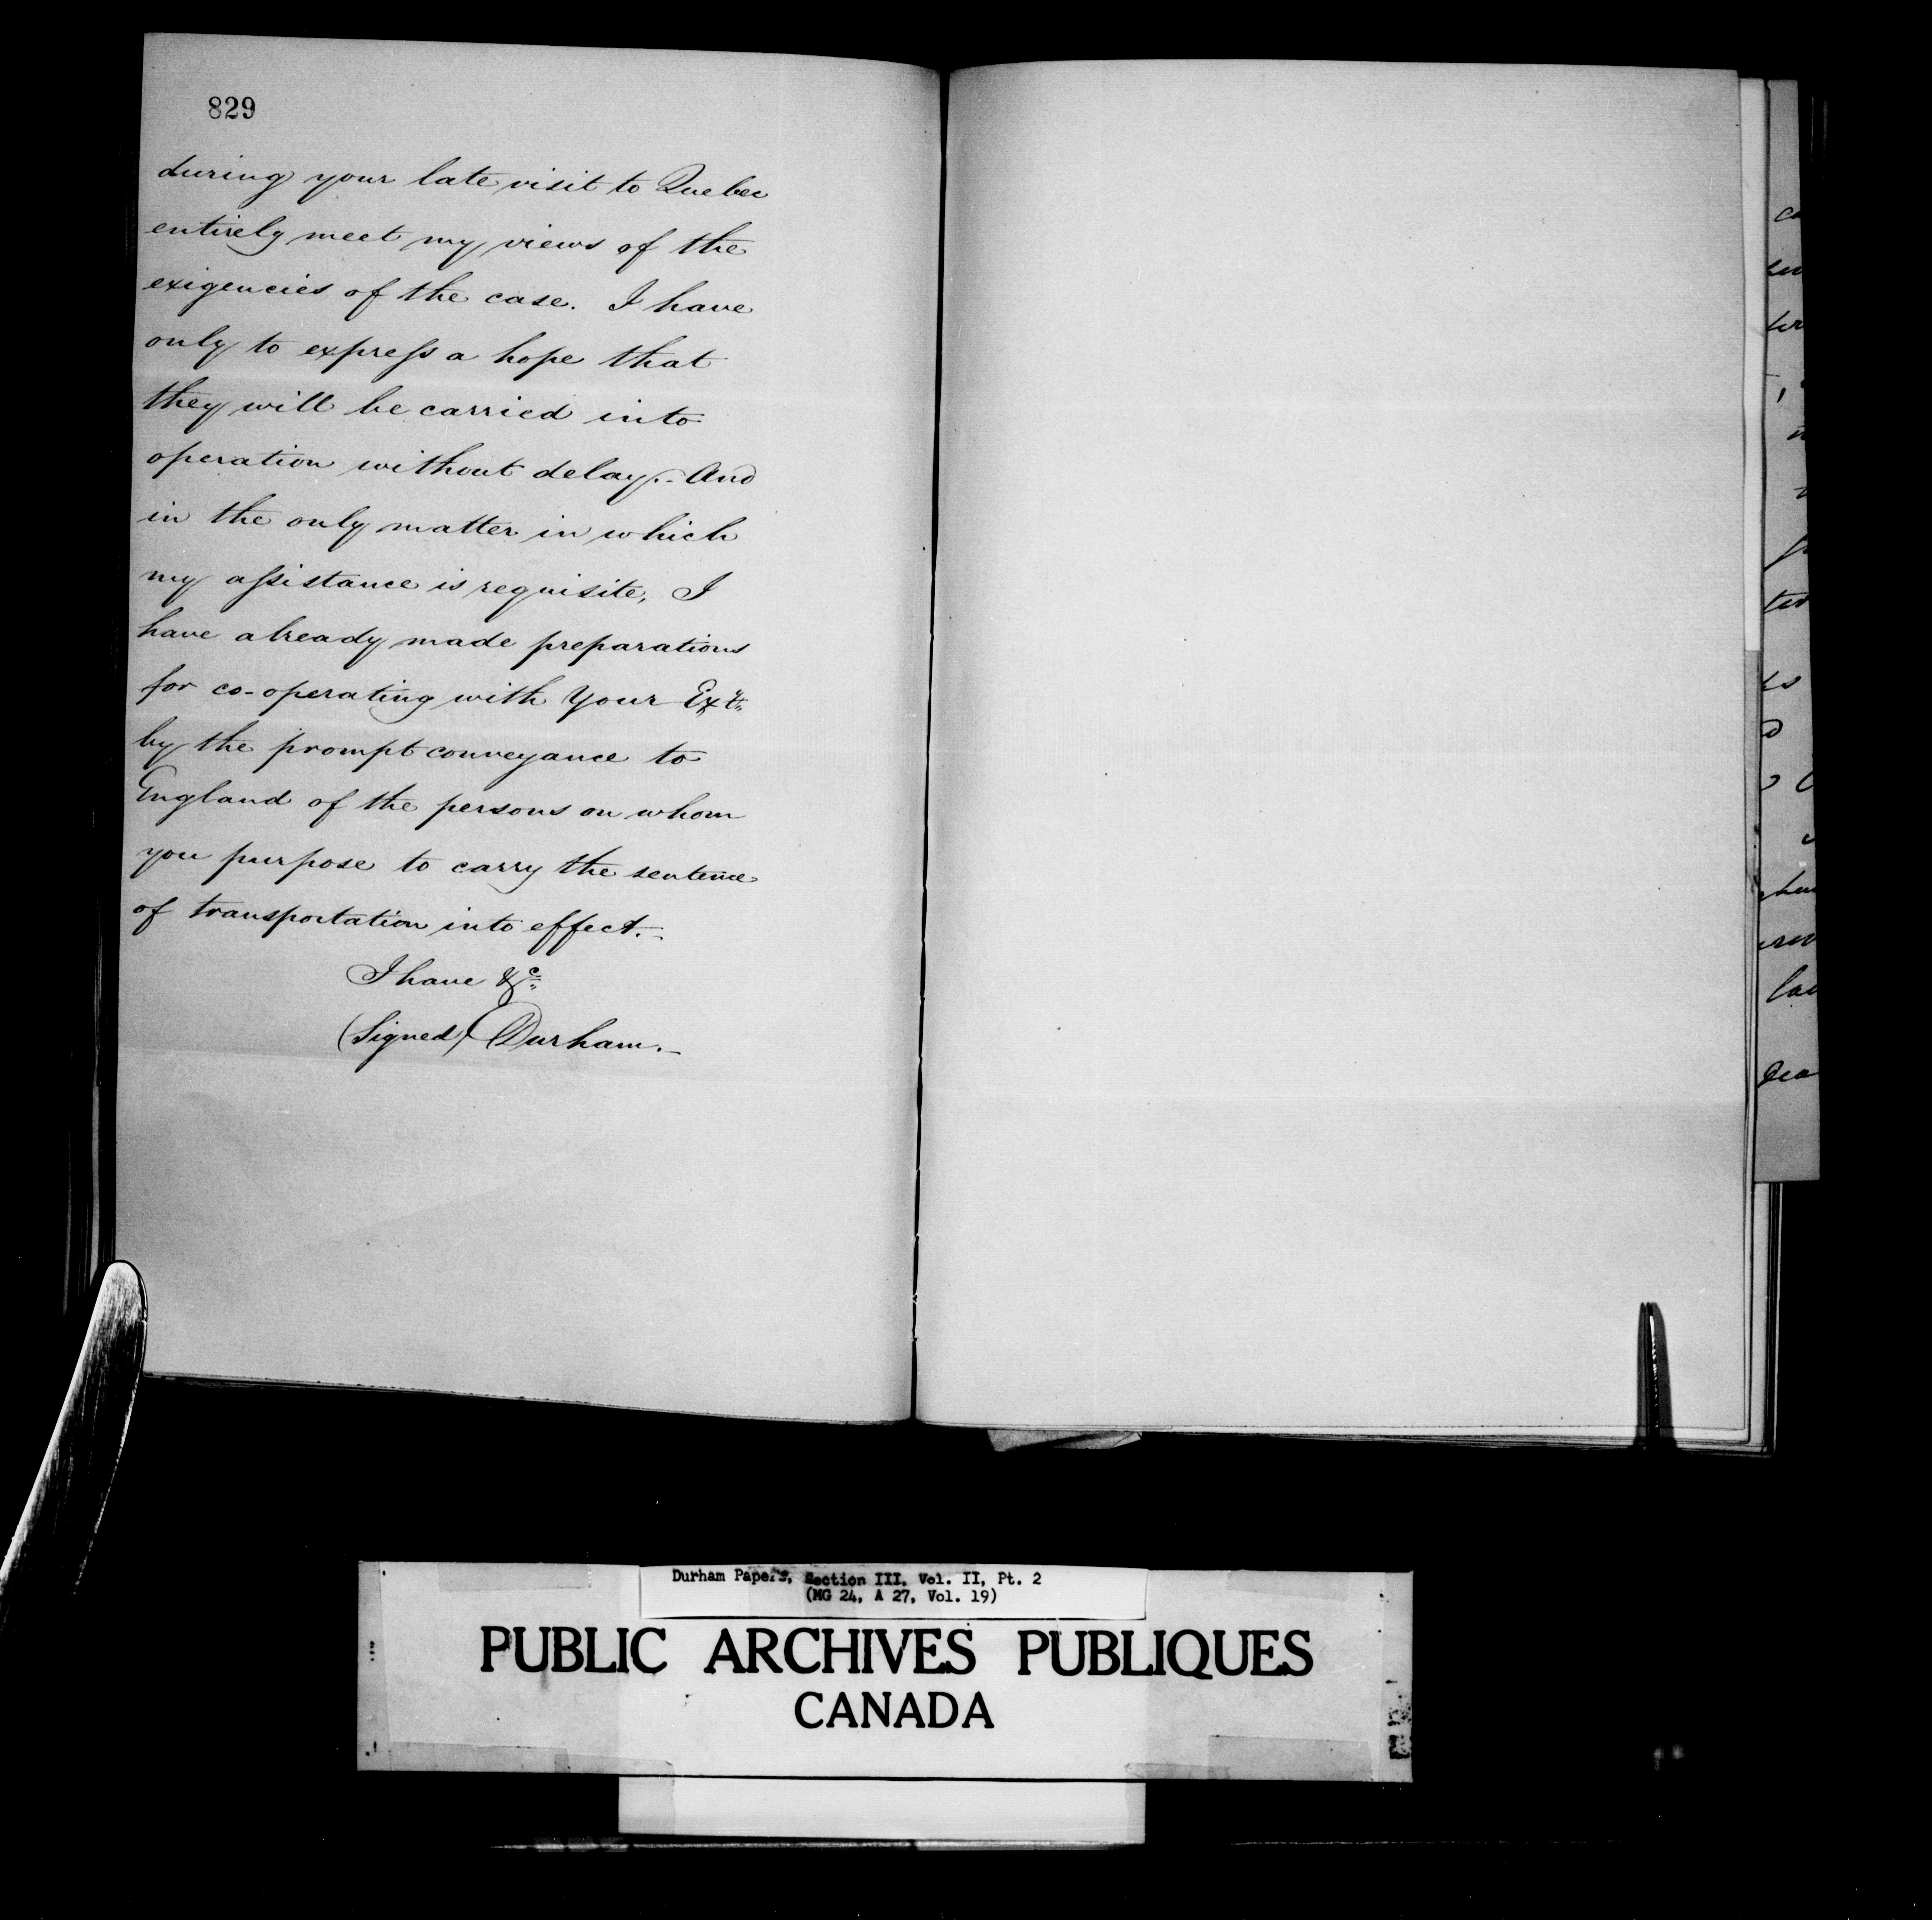 829
during your late visit to Quebec
entirely meet my views of the
exigencies of the case. I have
only to express a hope that
they will be carried into
operation without delay.- And
in the only matter in which
my assistance is requisite, I
have already made preparations
for co-operating with Your Ex
by the prompt conveyance to
England of the persons on whom
you purpose to carry the sentence
of transportation into effect.-
I have &c
(Signed) Durham.-
Durham Papers, Section III, Vol. II, Pt. 2
(MG 24, A 27, Vol. 19)
PUBLIC ARCHIVES PUBLIQUES
CANADA